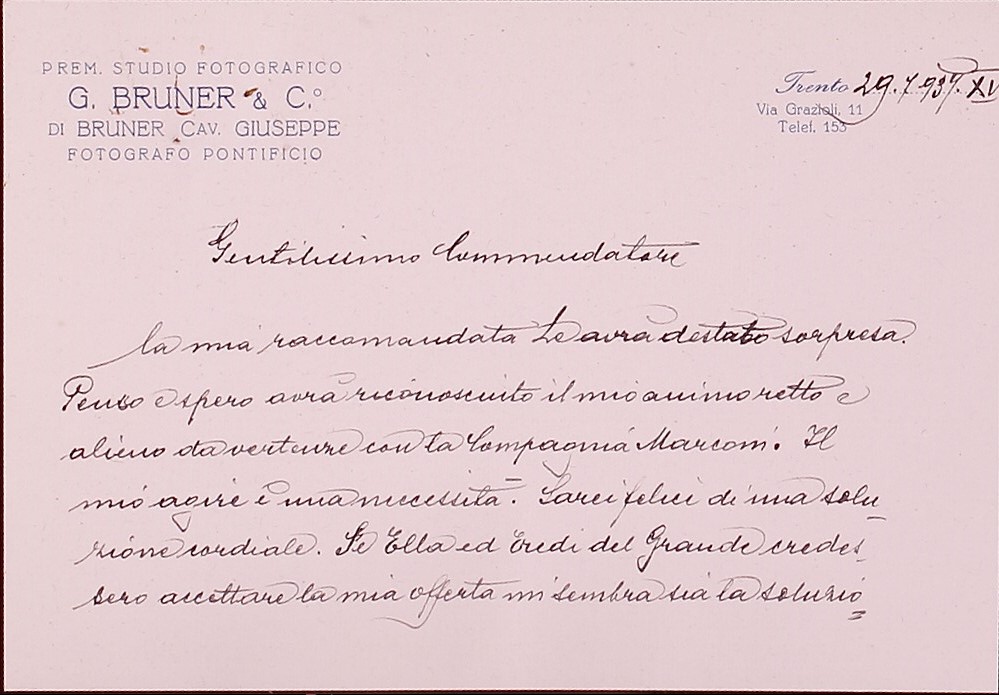 PREM. STUDIO FOTOGRAFICO
G. BRUNER & C.º
DI BRUNER CAV. GIUSEPPE
FOTOGRAFO PONTIFICIO
Trento 29.7.937.XV
Via Grazioli, 11
Telef. 153
Gentilissimo Commendatore
la mia raccomandata Le avrà destato sorpresa.
Penso e spero avrà riconosciuto il mio animo retto e
alieno da vertenze con la Compagnia Marconi. Il
mio agire è una necessità. Sarei felici di una solu_
zione cordiale. Se Ella ed Eredi del Grande credes_
sero accettare la mia offerta mi sembra sia la soluzio=